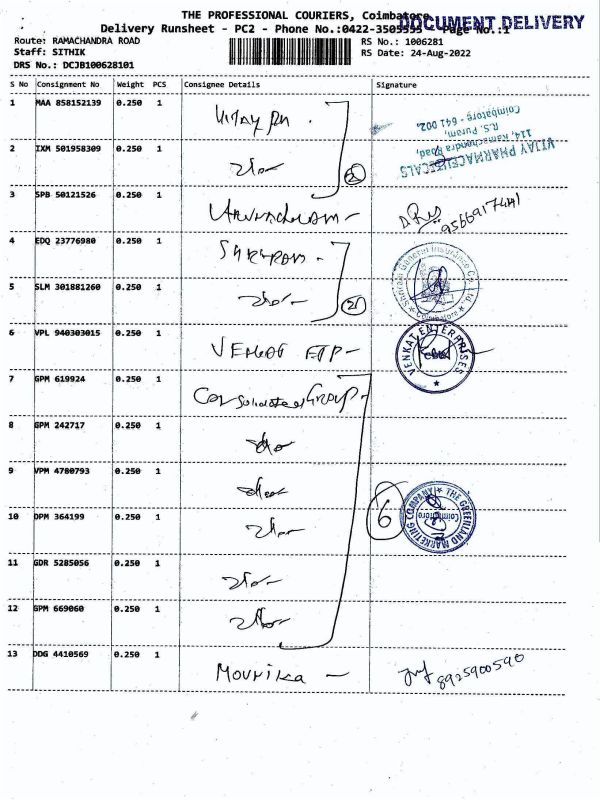 THE PROFESSIONAL COURIERS, Coimbatore
DOCUMENT DELIVERY
Delivery Runsheet - PC2 - Phone No.:0422-3505555 - Page No.:1
Route: RAMACHANDRA ROAD
RS No.: 1006281
Staff: SITHIK
RS Date: 24-Aug-2022
DRS No.: DCJB100628101
S No Consignment No Weight PCS Consignee Details Signature
1 MAA 858152139 0.250 1 Vijay Ph
VIJAY PHARMACEUTICALS
114, Ramachandra Road,
R.S. Puram,
Coimbatore - 641 002.
2 IXM 501958309 0.250 1
2
3 SPB 50121526 0.250 1
4 EDQ 23776980 0.250 1 Shriram
Shriram General Insurance Co. Ltd.
Coimbatore
5 SLM 301881260 0.250 1
2
6 VPL 940303015 0.250 1
VENKAT ENTERPRISES
7 GPM 619924 0.250 1 Consolidated Group
8 GPM 242717 0.250 1
9 VPM 4780793 0.250 1
10 DPM 364199 0.250 1
6
THE GREENLAND MARKETING COMPANY
Coimbatore
11 GDR 5285056 0.250 1
12 GPM 669060 0.250 1
13 DDG 4410569 0.250 1 Mounika
8925900590